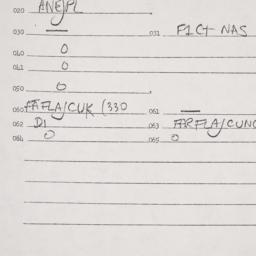 020 ANE/PL
030 — 031 F1C+ NAS
040 0
041 0
050 0
060 FAFLA/CUK (330 061 —
062 D1 063 FARFLA/CUNC
064 0 065 0